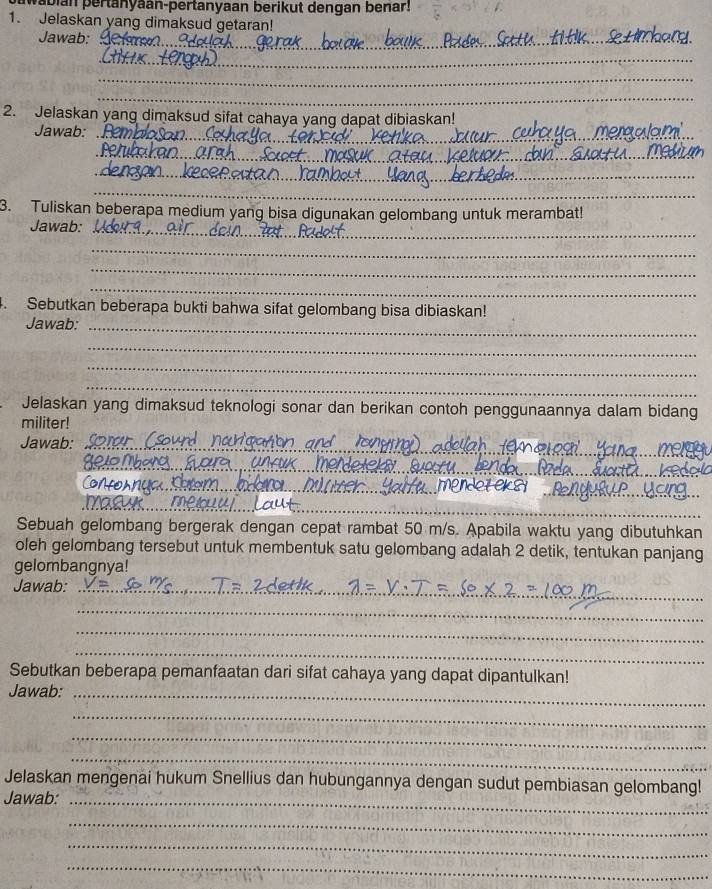 Jawablah pertanyaan-pertanyaan berikut dengan benar!
1. Jelaskan yang dimaksud getaran!
Jawab: getaran adalah gerak bolak balik Pada Satu titik setimbang.
(titik tengah)
2. Jelaskan yang dimaksud sifat cahaya yang dapat dibiaskan!
Jawab: Pembiasan Cahaya terjadi ketika Jalur cahaya mengalami
Perubahan arah Saat masuk atau keluar dari suatu medium
dengan kecepatan rambat yang berbeda.
3. Tuliskan beberapa medium yang bisa digunakan gelombang untuk merambat!
Jawab: Udara, air dan zat Padat
. Sebutkan beberapa bukti bahwa sifat gelombang bisa dibiaskan!
Jawab:
Jelaskan yang dimaksud teknologi sonar dan berikan contoh penggunaannya dalam bidang
militer!
Jawab: Sonar (sound navigation and ranging) adalah teknologi yang
gelombang suara untuk mendeteksi suatu benda Pada suatu
Contohnya dalam bidang militer yaitu mendeteksi Penyusup yang
masuk melalui laut
Sebuah gelombang bergerak dengan cepat rambat 50 m/s. Apabila waktu yang dibutuhkan
oleh gelombang tersebut untuk membentuk satu gelombang adalah 2 detik, tentukan panjang
gelombangnya!
Jawab: V = 50 m/s, T = 2 detik, λ = V · T = 50 × 2 = 100 m
Sebutkan beberapa pemanfaatan dari sifat cahaya yang dapat dipantulkan!
Jawab:
Jelaskan mengenai hukum Snellius dan hubungannya dengan sudut pembiasan gelombang!
Jawab: